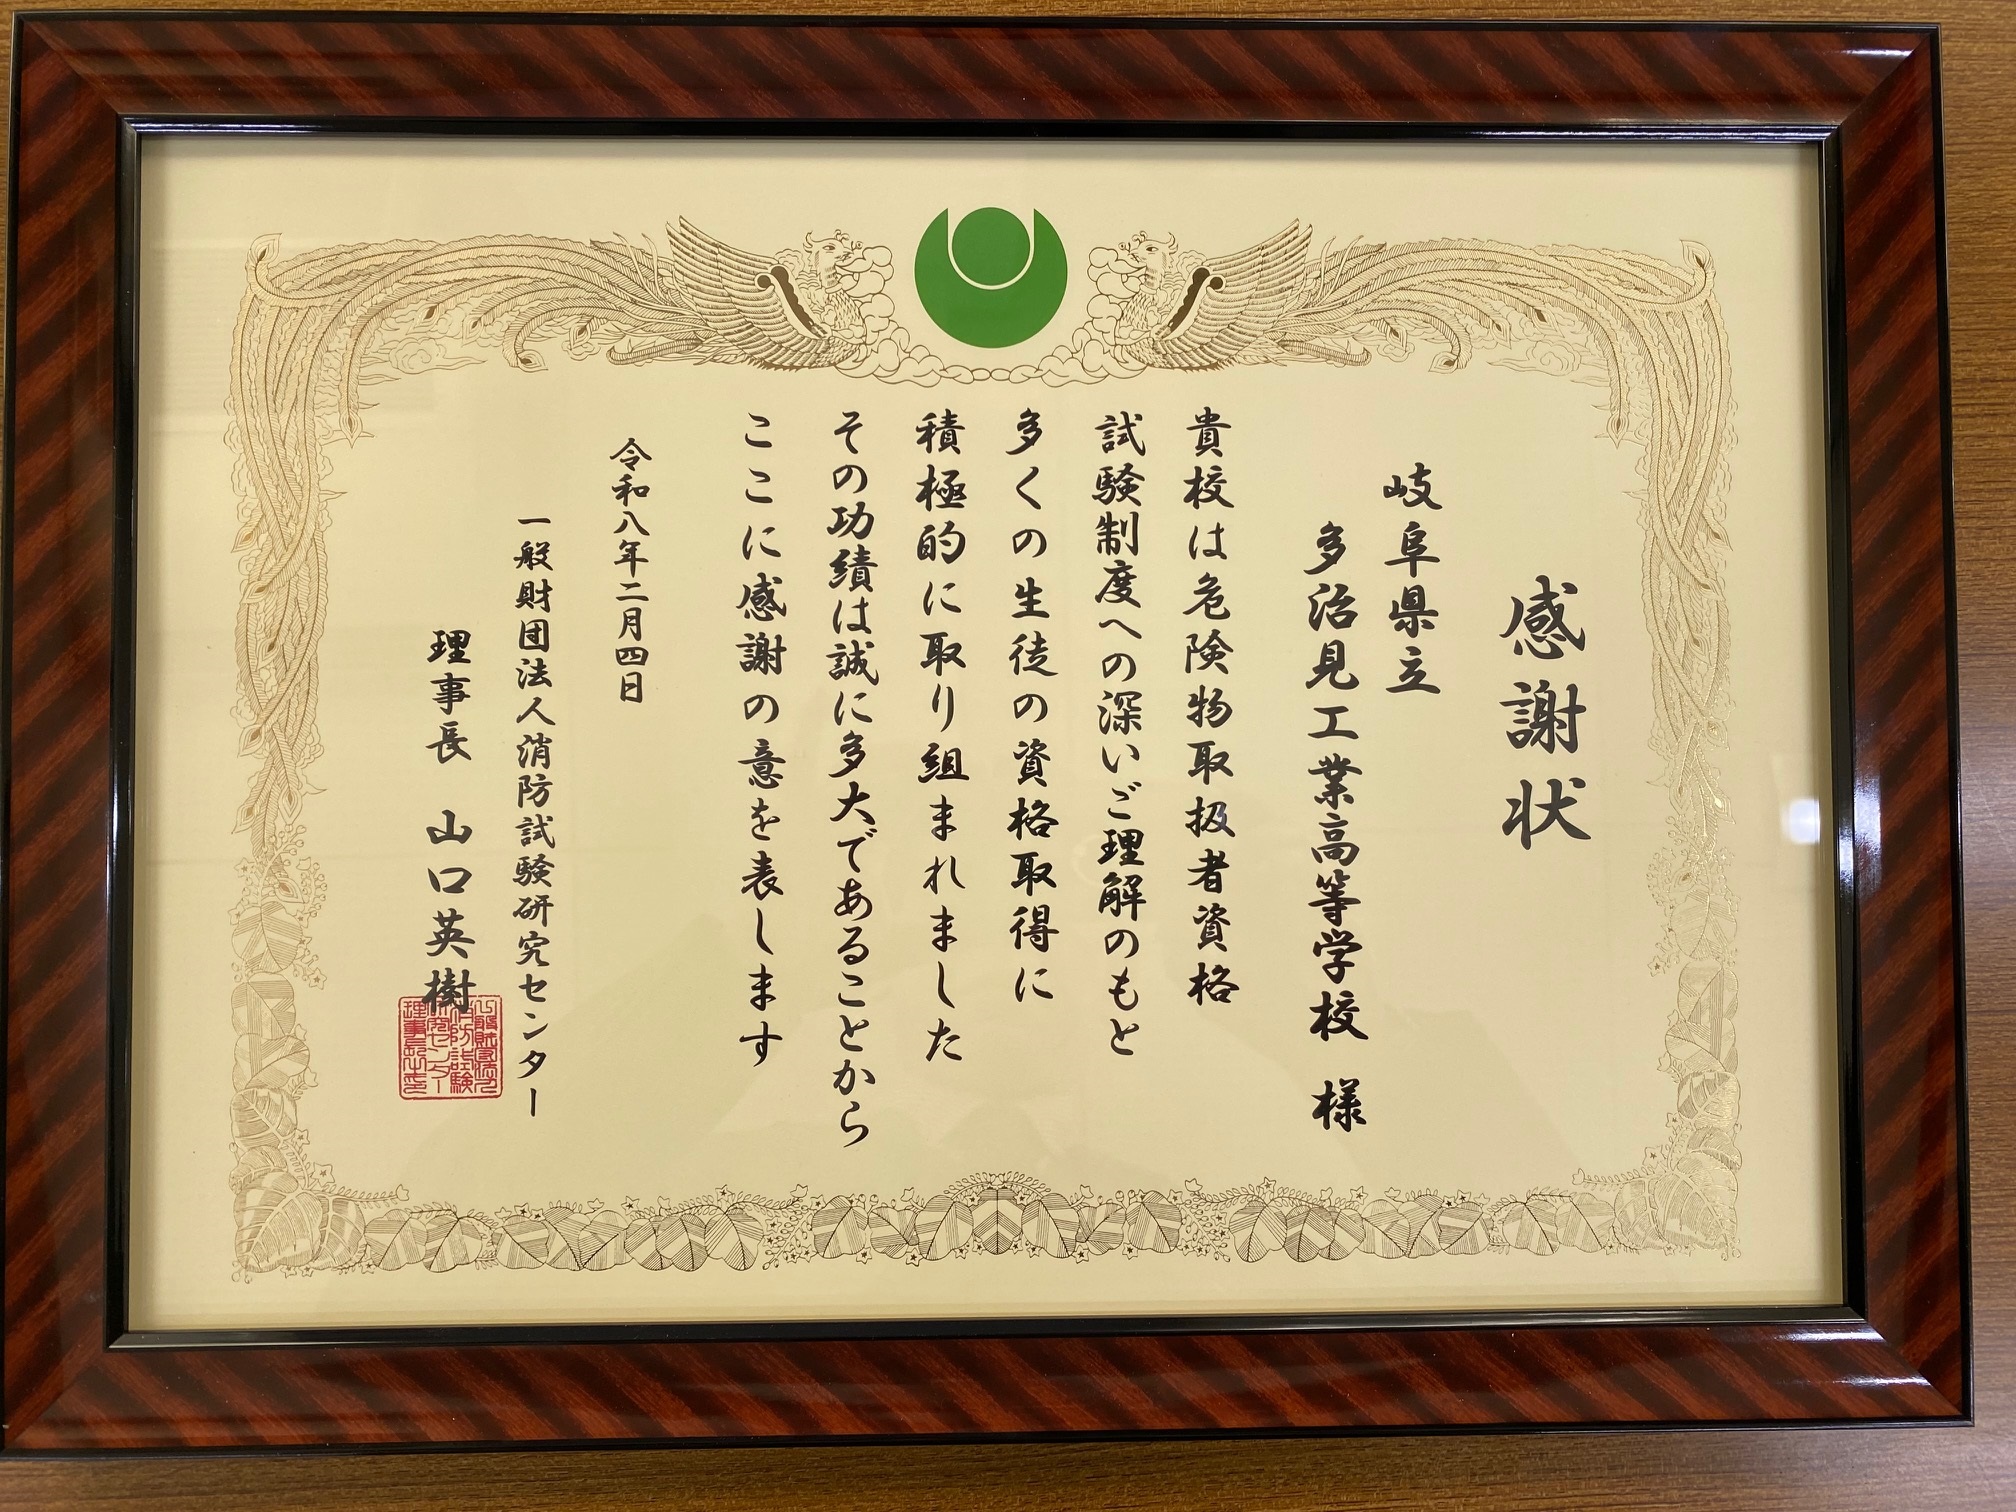 感謝状
岐阜県立
多治見工業高等学校 様
貴校は危険物取扱者資格
試験制度への深いご理解のもと
多くの生徒の資格取得に
積極的に取り組まれました
その功績は誠に多大であることから
ここに感謝の意を表します
令和八年二月四日
一般財団法人消防試験研究センター
理事長 山口英樹